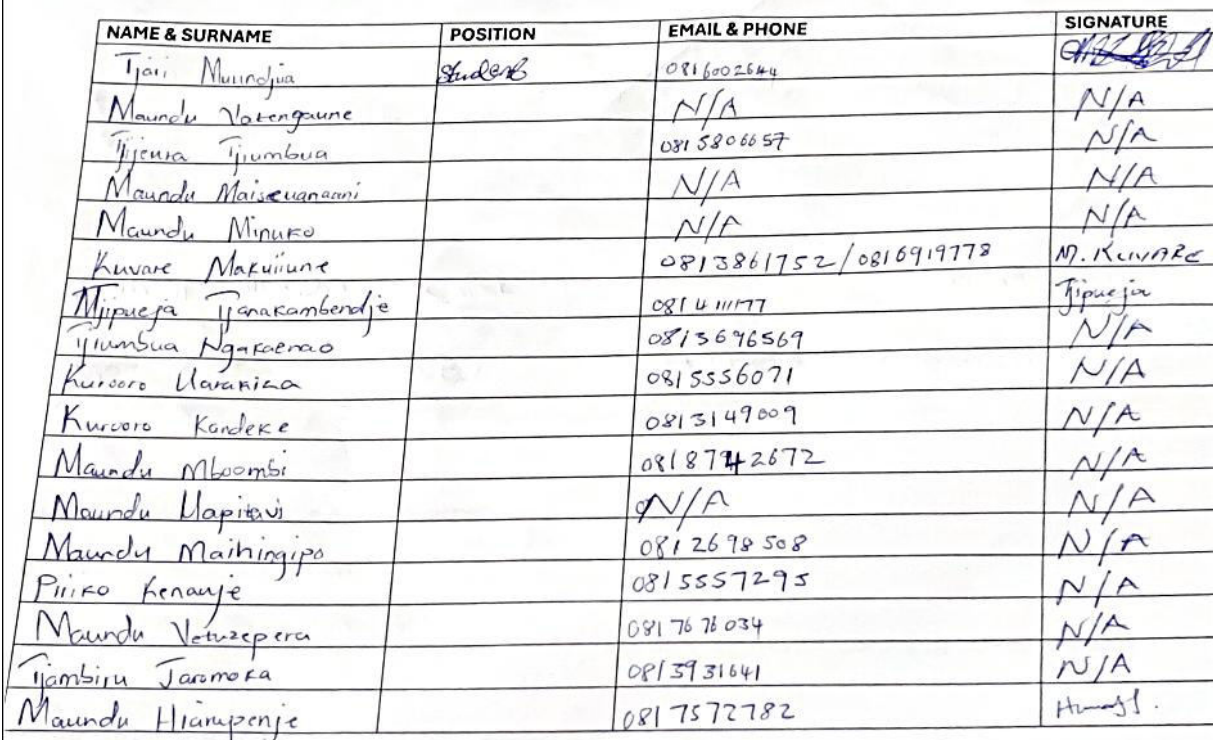 NAME & SURNAME POSITION EMAIL & PHONE SIGNATURE
Tjari Muundjua Student 0816002644
Maundu Vatengaune N/A N/A
Tjijeura Tjiumbua 0815806657 N/A
Maundu N/A N/A
Maundu Minuko N/A N/A
Kuvare Makuiiune 0813861752/0816919778 M. KUVARE
Mjipueja Tjanakambendje 081411177 Tjipueja
Tjiumbua Ngakaenao 0813696569 N/A
Kurooro Uarakiza 0815556071 N/A
Kurooro Kandeke 0813149009 N/A
Maundu Mboombi N/A
Maundu Uapitavi N/A N/A
Maundu Maihingipo 0812698508 N/A
Piriko Kenauje 0815557295 N/A
Maundu Vetuzepera 0817676034 N/A
Tjambiru Jaromoka 0813931641 N/A
Maundu Hiarupenje 0817572782